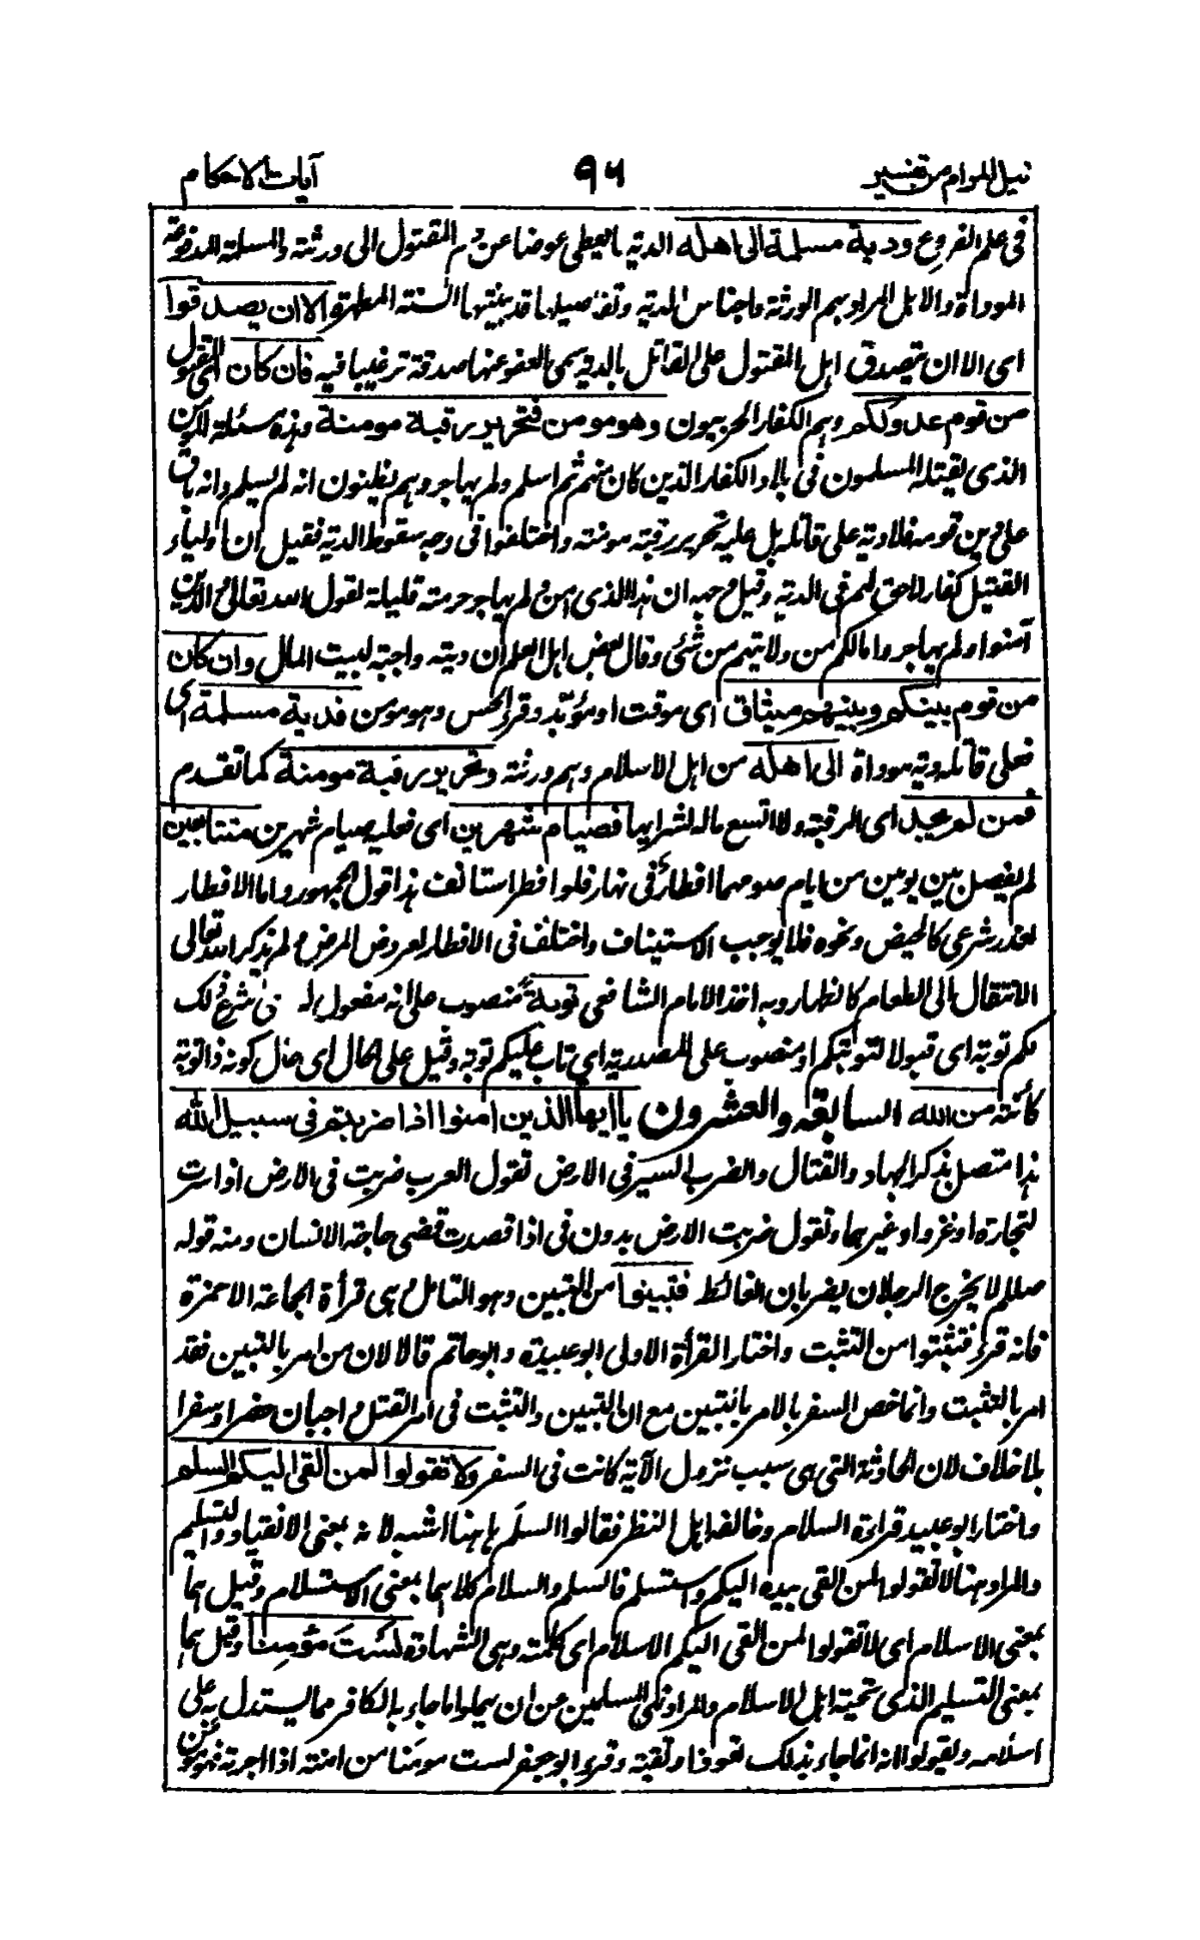 نيل المرام من تفسير ٩٦ آيات الاحكام
فى علم الفروع ودية مسلمة الى اهله الدية ما يعطى عوضا عن دم المقتول الى ورثته والمسلمة المدفوعة
الموداة والاهل المراد بهم الورثة واجناس الدية وتفاصيلها قد بينتها السنة المطهرة الا ان يصدقوا
اى الا ان يتصدق اهل المقتول على القاتل بالدية سمى العفو عنها صدقة ترغيبا فيه فان كان اى المقتول
من قوم عدو لكم وهم الكفار الحربيون وهو مومن فتحرير رقبة مومنة وهذه مسئلة المؤمن
الذى يقتله المسلمون فى بلاد الكفار الذين كان منهم ثم اسلم ولم يهاجر وهم يظنون انه لم يسلم وانه باق
على دين قومه فلا دية على قاتله بل عليه تحرير رقبة مومنة واختلفوا فى وجه سقوط الدية فقيل ان اولياء
القتيل كفار لا حق لهم فى الدية وقيل وجهه ان هذا الذى امن ولم يهاجر حرمته قليلة لقول الله تعالى والذين
آمنوا ولم يهاجروا مالكم من ولايتهم من شئ وقال بعض اهل العلم ان ديته واجبة لبيت المال وان كان
من قوم بينكم وبينهم ميثاق اى موقت او مؤبد وقرء الحسن وهو مومن فدية مسلمة اى
فعلى قاتله دية موداة الى اهله من اهل الاسلام وهم ورثته وتحرير رقبة مومنة كما تقدم
فمن لم يجد اى الرقبة ولا اتسع ماله لشرايها فصيام شهرين اى فعليه صيام شهرين متتابعين
لم يفصل بين يومين من ايام صومهما افطار فى نهار فلو افطر استانف هذا قول الجمهور واما الافطار
لعذر شرعى كالحيض ونحوه فلا يوجب الاستيناف واختلف فى الافطار لعروض المرض ولم يذكر الله تعالى
الانتقال الى الطعام كالظهار وبه اخذ الامام الشافعى توبة منصوب على انه مفعول له اى شرع ذلك
لكم توبة اى قبولا لتوبتكم او منصوب على المصدرية اى تاب عليكم توبة وقيل على الحال اى حال كونه ذا توبة
كائنة من الله السابعة والعشرون يا ايها الذين امنوا اذا ضربتم فى سبيل الله
هذا متصل بذكر الجهاد والقتال والضرب السير فى الارض تقول العرب ضربت فى الارض اذا سرت
لتجارة او غزو او غيرهما وتقول ضربت الارض بدون فى اذا قصدت قضى حاجة الانسان ومنه قوله
صللم لا يخرج الرجلان يضربان الغائط فتبينوا من التبين وهو التامل وهى قرأة الجماعة الا حمزة
فانه قرء فتثبتوا من التثبت واختار القرأة الاولى ابو عبيدة وابو حاتم قالا لان من امر بالتبين فقد
امر بالتثبت وانما خص السفر بالامر بالتبين مع ان التبين والتثبت فى امر القتل واجبان حضرا وسفرا
بلا خلاف لان الحادثة التى هى سبب نزول الآية كانت فى السفر ولا تقولوا لمن القى اليكم السلم
واختار ابو عبيد قراءة السلام وخالفه اهل النظر فقالوا السلم هاهنا اشبه لانه بمعنى الانقياد والتسليم
والمراد هنا لا تقولوا لمن القى بيده اليكم واستسلم فالسلم والسلام كلاهما بمعنى الاستسلام وقيل هما
بمعنى الاسلام اى لا تقولوا لمن القى اليكم الاسلام اى كلمته وهى الشهادة لست مؤمنا وقيل هما
بمعنى التسليم الذى تحية اهل الاسلام والمراد نهى المسلمين عن ان يهملوا ما جاء به الكافر مما يستدل به على
اسلامه ويقولوا انه انما جاء بذلك تعوذا وتقية وقرء ابو جعفر لست مومنا من امنته اذا اجرته فهو مومن